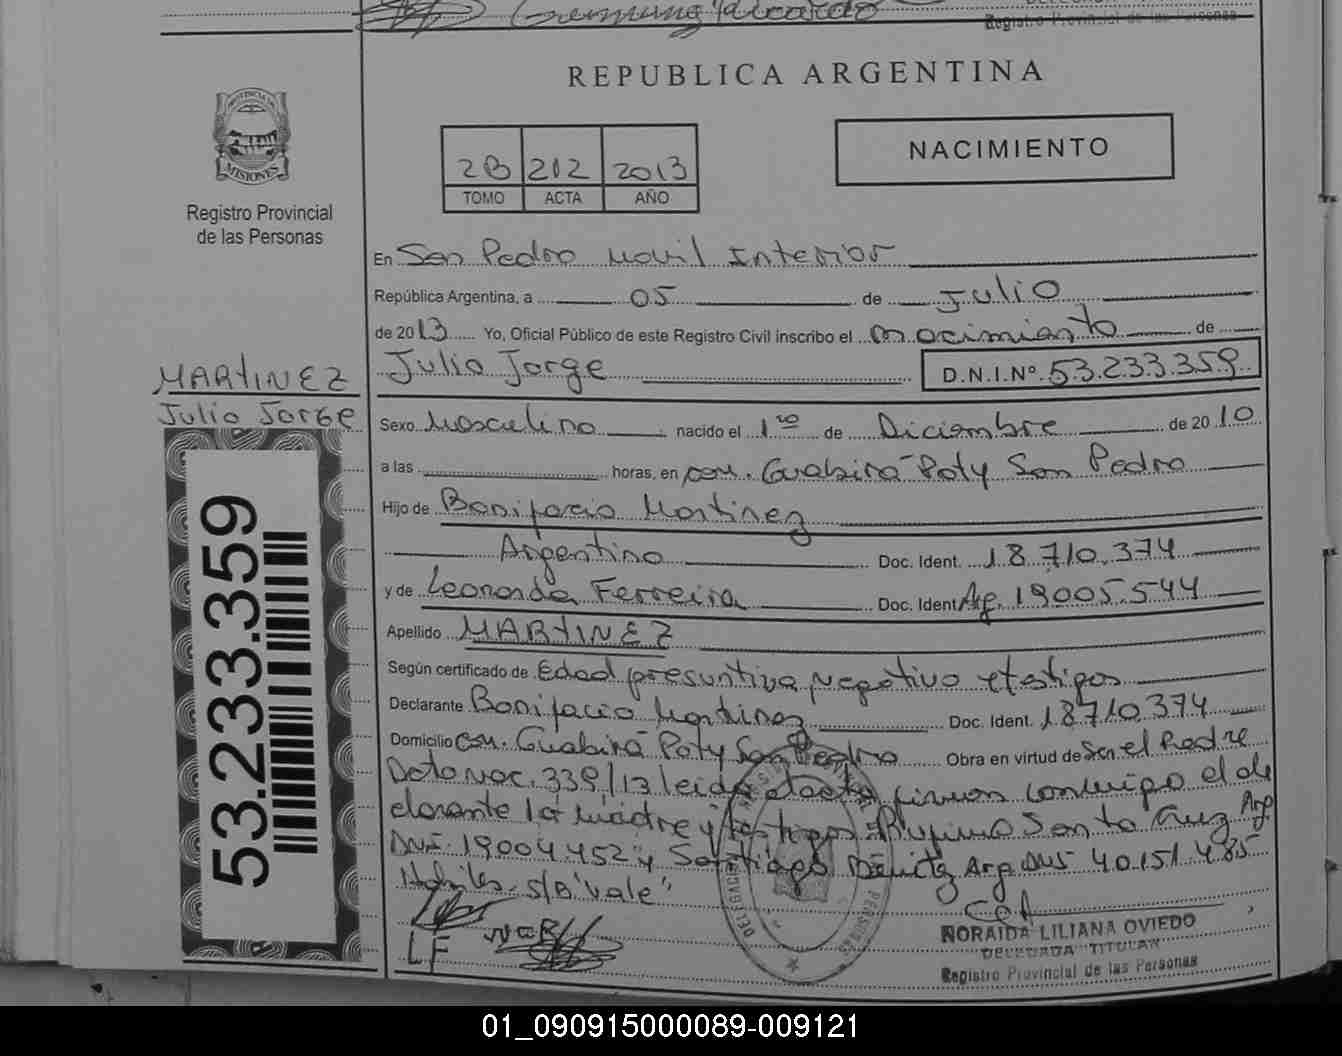 Registro Provincial de las Personas
REPUBLICA ARGENTINA
PROVINCIA DE
MISIONES
Registro Provincial
de las Personas
2B 212 2013
TOMO ACTA AÑO
NACIMIENTO
En San Pedro Movil Interior
República Argentina, a 05 de Julio
de 2013 Yo, Oficial Público de este Registro Civil inscribo el nacimiento de
Julio Jorge D.N.I.Nº 53.233.359
MARTINEZ
Julio Jorge
53.233.359
Sexo Masculino nacido el 1ro de Diciembre de 2010
a las horas, en com. Guabira Poty San Pedro
Hijo de Bonifacio Martinez
Argentino Doc. Ident. 18.710.374
y de Leonarda Ferreira Doc. Ident Arg. 19005.544
Apellido MARTINEZ
Según certificado de Edad presuntiva, negativo y testigos
Declarante Bonifacio Martinez Doc. Ident. 18710.374
Domicilio com. Guabira Poty San Pedro Obra en virtud de ser el Padre
Dcto Nac. 339/13 leida el acta firman conmigo el de
clarante la madre y testigos Rufino Santa Cruz Arg
DNI. 19004.452 y Santiago Benitez Arg DNI 40.151.485
Habiles. S/B "vale"
LF
NORAIDA LILIANA OVIEDO
DELEGADA TITULAR
Registro Provincial de las Personas
01_090915000089-009121